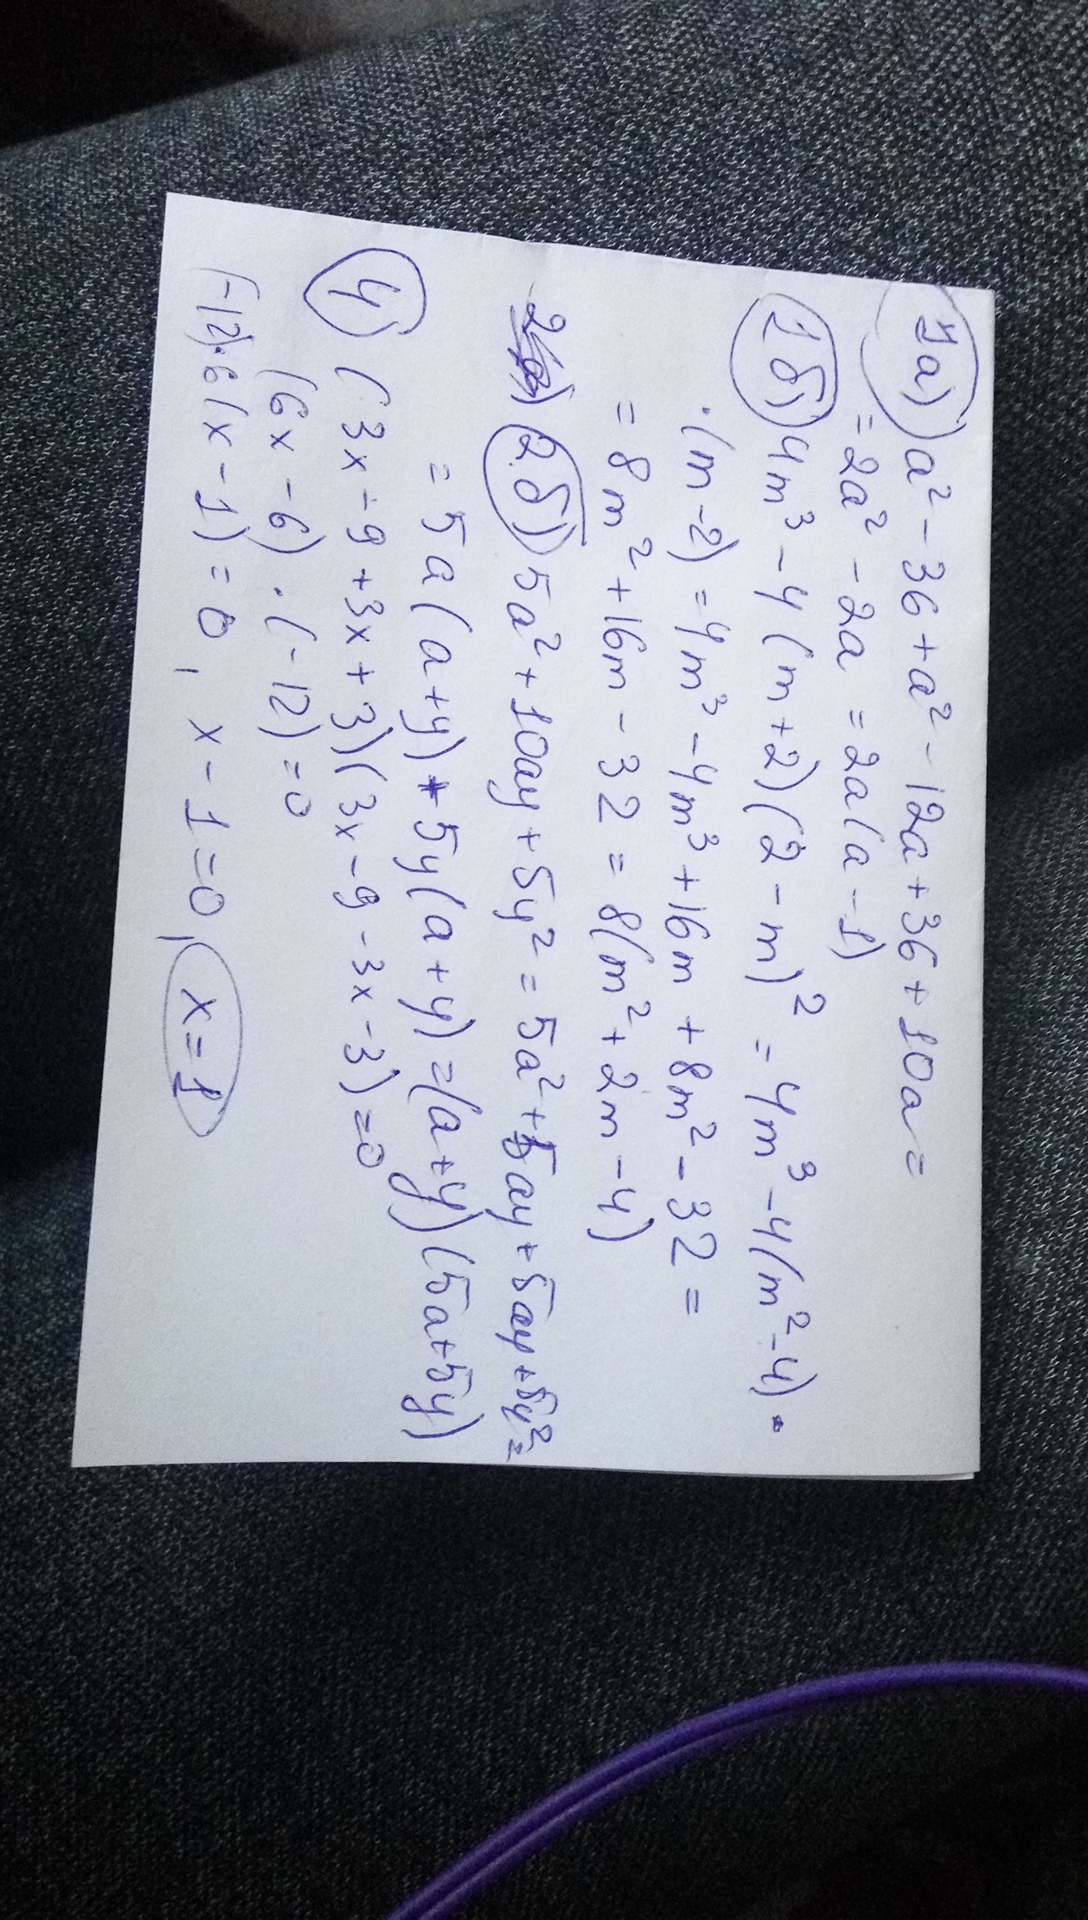 1а) a² - 36 + a² - 12a + 36 + 10a =
= 2a² - 2a = 2a(a - 1)
1б) 4m³ - 4(m+2)(2-m)² = 4m³ - 4(m² - 4) ·
· (m - 2) = 4m³ - 4m³ + 16m + 8m² - 32 =
= 8m² + 16m - 32 = 8(m² + 2m - 4)
2.б) 5a² + 10ay + 5y² = 5a² + 5ay + 5ay + 5y² =
= 5a(a+y) + 5y(a+y) = (a+y)(5a+5y)
4) (3x - 9 + 3x + 3)(3x - 9 - 3x - 3) = 0
(6x - 6) · (-12) = 0
(-12) · 6(x - 1) = 0, x - 1 = 0, x = 1